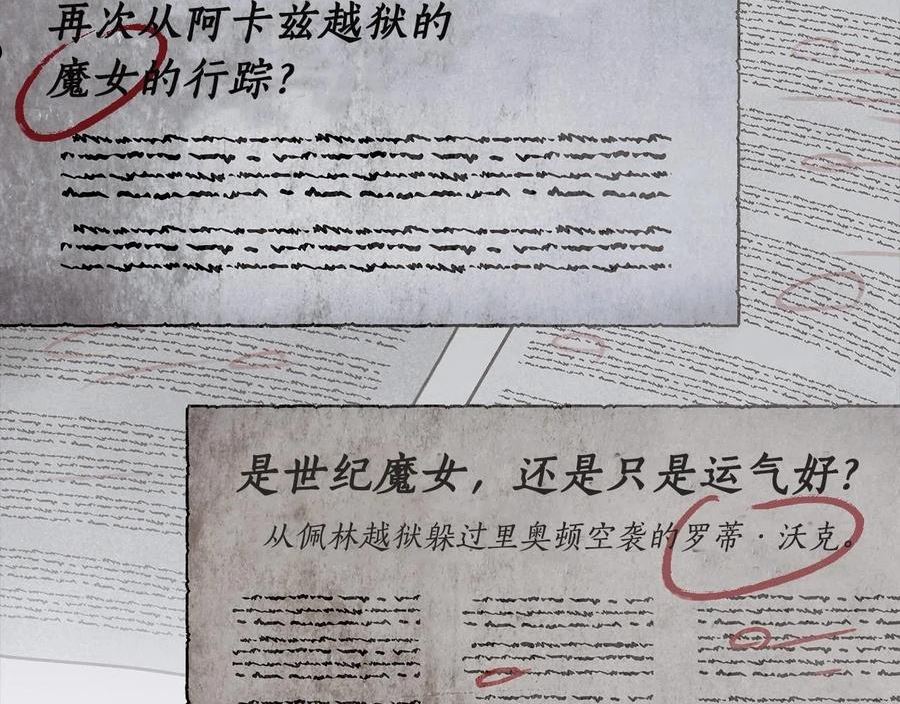 再次从阿卡兹越狱的
魔女的行踪?
是世纪魔女，还是只是运气好?
从佩林越狱躲过里奥顿空袭的罗蒂·沃克。